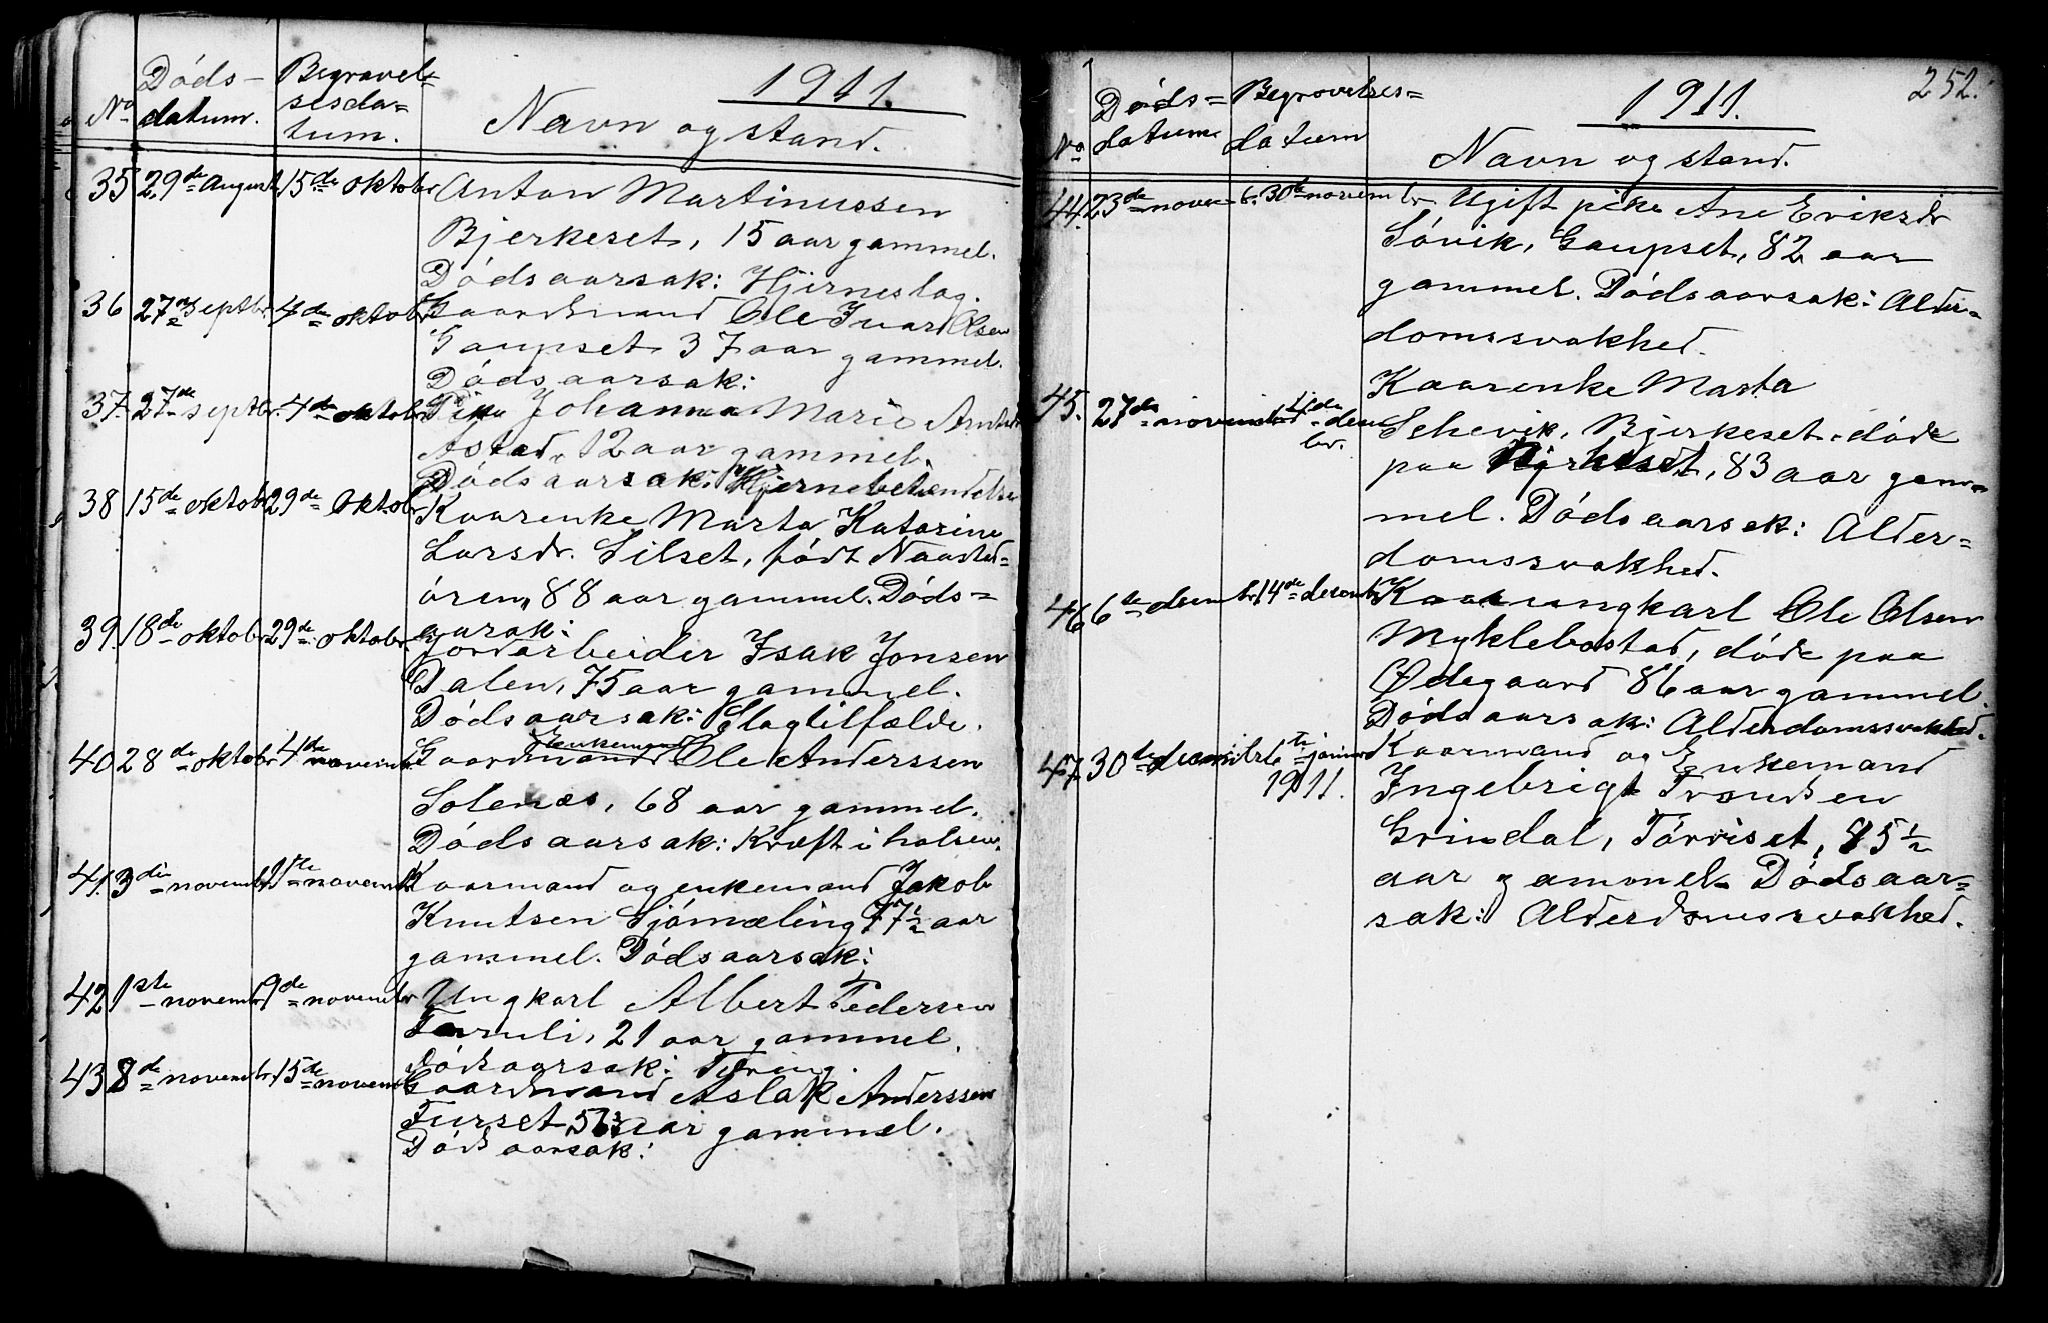 1911.
No Döds-datum. Begravel-sesda-tum. Navn og stand.
35 29de august 15de oktobr Anton Martinussen
Bjerkeset, 15 aar gammel.
Dödsaarsak: Hjerneslag.
36 27de septbr. 4de oktobr Gaardmand Ole Ivar Olsen
Gaupset 37 aar gammel.
Dödsaarsak:
37. 27de septbr. 4de oktobr Pike Johanna Marie
Astad, 12 aar gammel.
Dödsaarsak: Hjernebetændelse
38 15de oktobr 29de Oktobr Kaarenke Marta Katarine
Larsdr. Silset, födt Naasted-
ören, 88 aar gammel. Döds-
aarsak:
39. 18de oktobr 29de oktobr. Jordarbeider Isak Jonsen
Dalen, 75 aar gammel.
Dödsaarsak: Slagtilfælde.
Enkemand
40 28de oktobr 4de novembr Gaardmand Ole Anderssen
Solenæs, 68 aar gammel.
Dödsaarsak: Kræft i halsen.
41. 3die novembr novembr Kaarmand og enkemand Jakob
Knutsen Sjömæling 77½ aar
gammel. Dödsaarsak:
42 1ste novembr 9de novembr Ungkarl Albert Pedersen
21 aar gammel.
Dödsaarsak: Tæring.
43 8de novembr. 15de novembr Gaardmand Aslak Anderssen
Furset, aar gammel.
Dödsaarsak:
252.
1911.
No Döds-datum Begravelses-datum Navn og stand.
44. 23de novem-br. 30te novembr. Ugift pike Ane Eriksdr
Sövik, Gaupset, 82 aar
gammel. Dödsaarsak: Alder-
domssvakhed.
45. 27de novembr 4de decem-br. Kaarenke Marta
Schevik, Bjerkeset, döde
paa Bjerkeset, 83 aar gam-
mel. Dödsaarsak: Alder-
domssvakhed.
46 6te decembr. 14de decembr ungkarl Ole Olsen
Myklebostad, döde paa
Ødegaard 86 aar gammel.
Dödsaarsak: Alderdomssvakhed.
47. 30te decembr. 6te januar 1911. Kaarmand og Enkemand
Ingebrigt Trondsen
Grindal, Törriset, 85½
aar gammel. Dödsaar-
sak: Alderdomssvakhed.